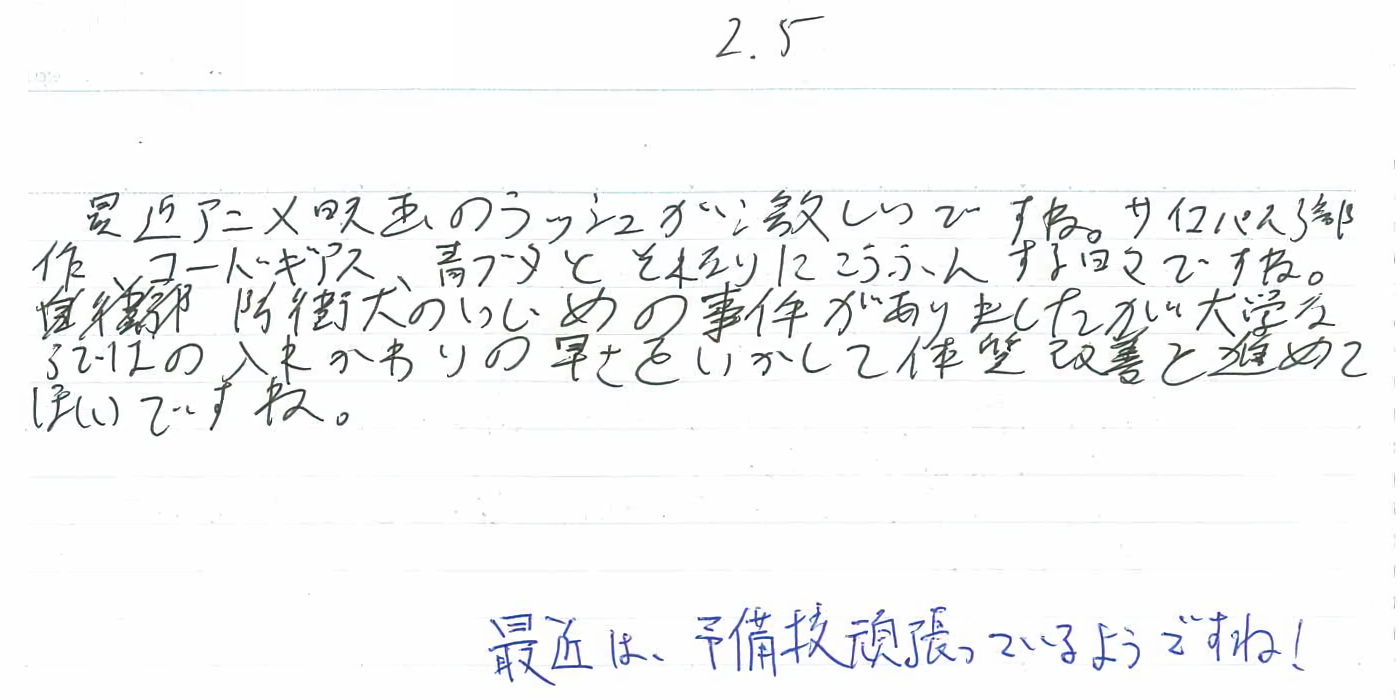 2.5
最近アニメ映画のラッシュが激しいですね。サイコパス3部
作、コードギアス、青ブタとそれなりにこうふんする日々ですね。
防衛大のいじめの事件がありましたがい大学な
らではの入れかわりの早さをいかして体質改善を進めて
ほしいですね。
最近は、予備校頑張っているようですね!